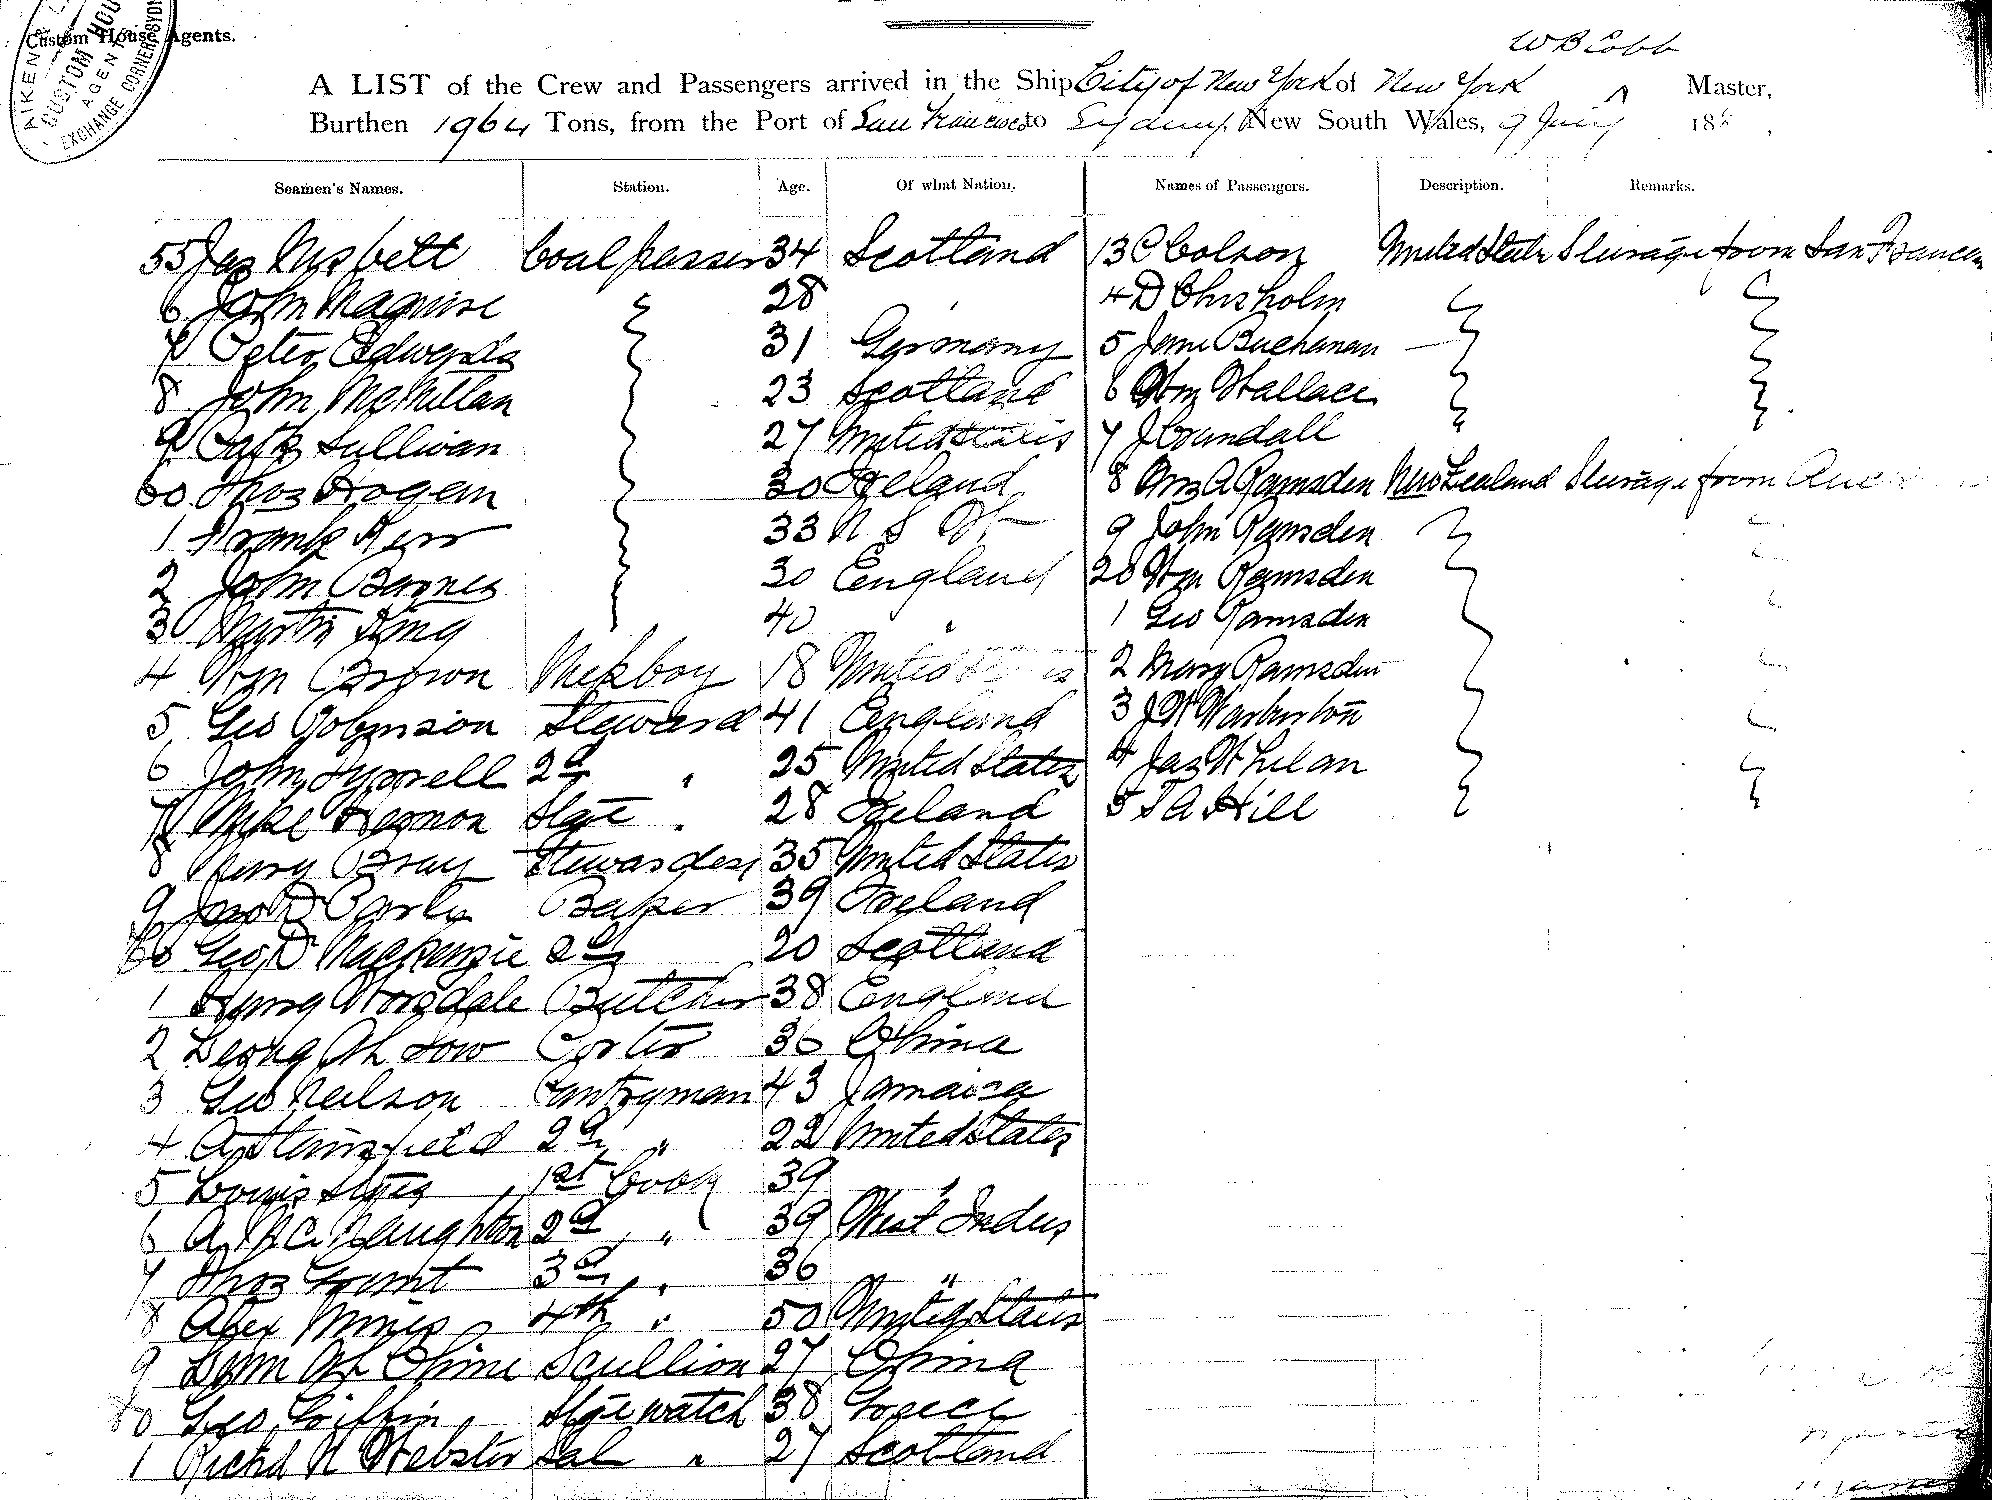 Custom House Agents.
AIKEN & 
CUSTOM HOU
AGENT
EXCHANGE CORNER SYDN
W B Cobb
A LIST of the Crew and Passengers arrived in the Ship City of New York of New York ^ Master,
Burthen 1964 Tons, from the Port of San Francisco to Sydney New South Wales, 9 188 ,
Seamen's Names. Station. Age. Of what Nation. Names of Passengers. Description. Remarks.
55 Jas Nisbett Coalpasser 34 Scotland 13 C Colson United State Steerage from San Francisco
6 John Maguire 28 " 4 D Chisholm
7 Peter Edwards 31 Germany 5 Jane Buchanan
8 John McMillan 23 Scotland 6 Wm Wallace
9 Patk Sullivan 27 United States 7 J Crundall
60 Thos Hogan 30 Ireland 8 Mrs A Ramsden New Zealand Steerage from Auc
1 Frank Kerr 33 N S W 9 John Ramsden
2 John Barnes 30 England 20 Wm Ramsden
3 Martin King 40 " 1 Geo Ramsden
4 Wm Brown Messboy 18 United States 2 Mary Ramsden
5 Geo Robinson Steward 41 England 3 J W Warburton
6 John Tyrrell 2d " 25 United States 4 Jas Whelan
7 Mike Hannon Stge " 28 Ireland 5 T A Hill
8 Mary Bray Stewardess 35 United States
9 Jno D Early Baker 39 Ireland
60 Geo D Mackenzie 2d 20 Scotland
1 Henry Worsdale Butcher 38 England
2 Leong Ah Low Porter 36 China
3 Geo Neilson Pantryman 43 Jamaica
4 A Stansfield 2d " 22 United States
5 Louis 1st Cook 39 "
6 A McNaughton 2d " 39 West Indies
7 Thos Grant 3d " 36 "
8 Alex Minis 4th " 50 United States
9 Ah Scullion 27 China
70 Geo Griffin Stge watch 38 Greece
1 Richd N Webster Sal " 27 Scotland